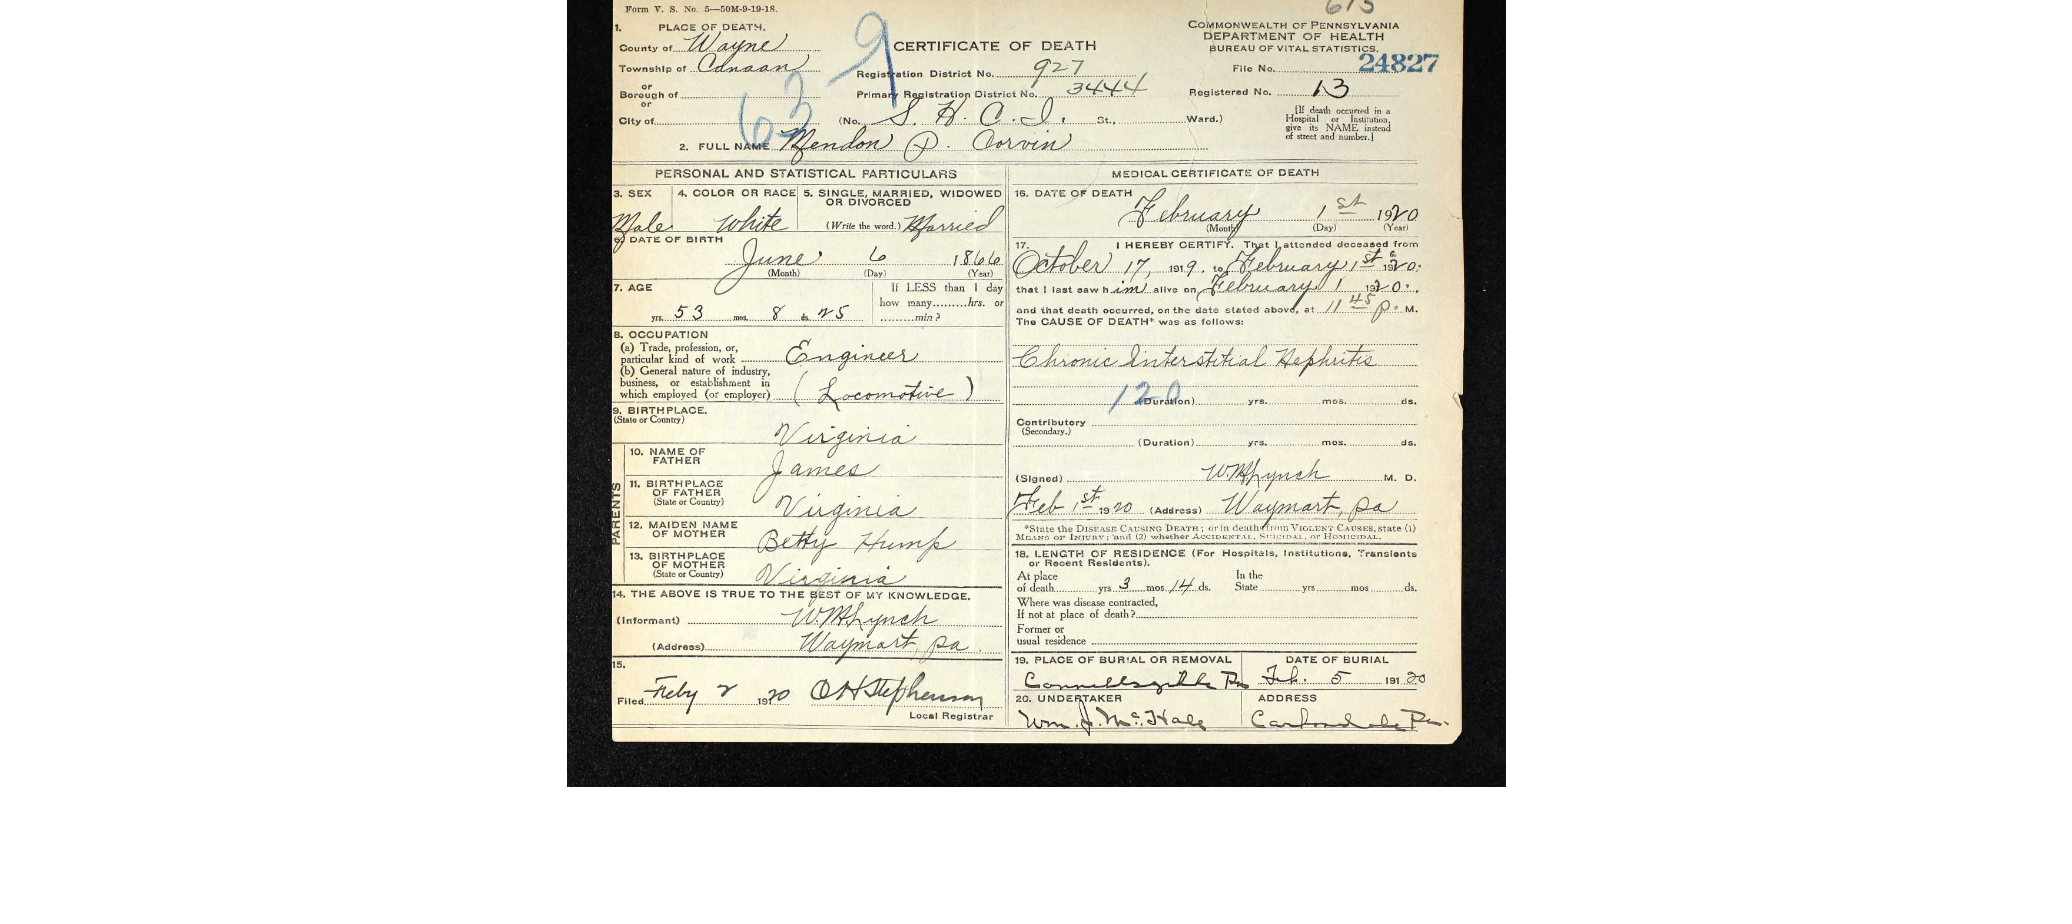 Form V. S. No. 5—50M-9-19-18.
1. PLACE OF DEATH.
County of Wayne
Township of Canaan
or
Borough of
or
City of
CERTIFICATE OF DEATH
Registration District No. 927
Primary Registration District No. 3444
(No. S. H. C. I. St., Ward.)
COMMONWEALTH OF PENNSYLVANIA
DEPARTMENT OF HEALTH
BUREAU OF VITAL STATISTICS.
File No. 24827
Registered No. 13
[If death occurred in a
Hospital or Institution,
give its NAME instead
of street and number.]
63 9
2. FULL NAME Mendon P. Corvin
PERSONAL AND STATISTICAL PARTICULARS
3. SEX
Male
4. COLOR OR RACE
White
5. SINGLE, MARRIED, WIDOWED
OR DIVORCED
(Write the word.) Married
6. DATE OF BIRTH
June 6 1866
(Month) (Day) (Year)
7. AGE
53 yrs. 8 mos. 25 ds.
If LESS than 1 day
how many........hrs. or
........min?
8. OCCUPATION
(a) Trade, profession, or,
particular kind of work Engineer
(b) General nature of industry,
business, or establishment in
which employed (or employer) (Locomotive)
9. BIRTHPLACE.
(State or Country)
Virginia
PARENTS
10. NAME OF
FATHER
James
11. BIRTHPLACE
OF FATHER
(State or Country)
Virginia
12. MAIDEN NAME
OF MOTHER
Betty Hump
13. BIRTHPLACE
OF MOTHER
(State or Country)
Virginia
14. THE ABOVE IS TRUE TO THE BEST OF MY KNOWLEDGE.
(Informant) W.M. Lynch
(Address) Waymart, Pa.
15.
Filed Feby 2 1920 O H Stephenson
Local Registrar
MEDICAL CERTIFICATE OF DEATH
16. DATE OF DEATH
February 1st 1920
(Month) (Day) (Year)
17. I HEREBY CERTIFY. That I attended deceased from
October 17, 1919. to February 1st 1920.
that I last saw him alive on February 1 1920.,
and that death occurred, on the date stated above, at 11 45 P. M.
The CAUSE OF DEATH* was as follows:
Chronic Interstitial Nephritis
120
(Duration) yrs. mos. ds.
Contributory
(Secondary.)
(Duration) yrs. mos. ds.
(Signed) W.M. Lynch M. D.
Feb 1st 1920 (Address) Waymart, Pa
*State the DISEASE CAUSING DEATH; or in deaths from VIOLENT CAUSES, state (1)
MEANS OF INJURY; and (2) whether ACCIDENTAL, SUICIDAL, or HOMICIDAL.
18. LENGTH OF RESIDENCE (For Hospitals, Institutions, Transients
or Recent Residents).
At place
of death yrs 3 mos. 14 ds.
In the
State yrs mos ds.
Where was disease contracted,
If not at place of death?
Former or
usual residence
19. PLACE OF BURIAL OR REMOVAL
Connellsville Pa
DATE OF BURIAL
Feb. 5 1920
20. UNDERTAKER
Wm. J. McHale
ADDRESS
Carbondale Pa.